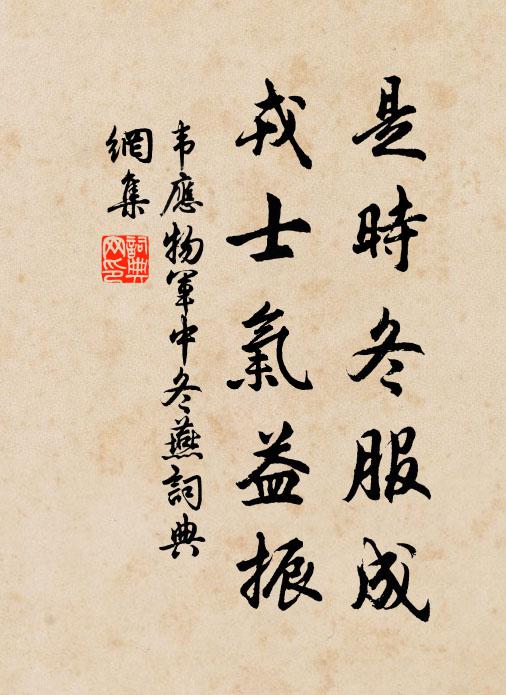 是時冬服成
戎士氣益振
韦應物軍中冬燕詞典
網集
詞典
网印